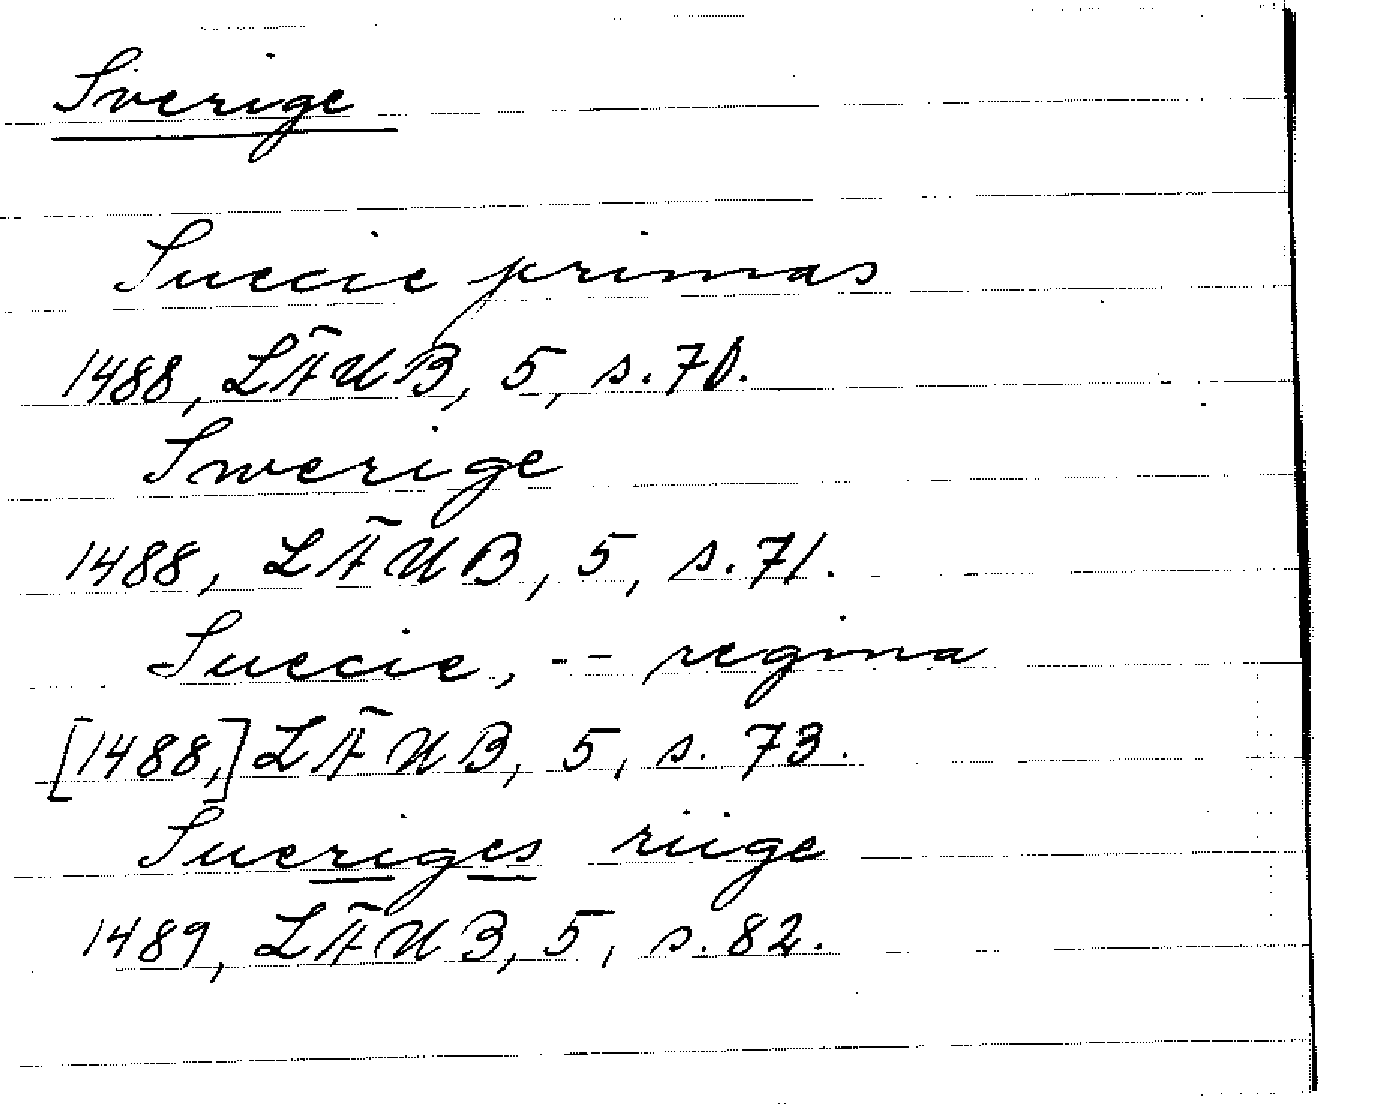 Sverige
Suecie primas
1488, LÄUB, 5, s. 70.
Swerige
1488, LÄUB, 5, s. 71.
Suecie, -- regina
[1488,] LÄUB, 5, s. 73.
Sueriges riige
1489, LÄUB, 5, s. 82.